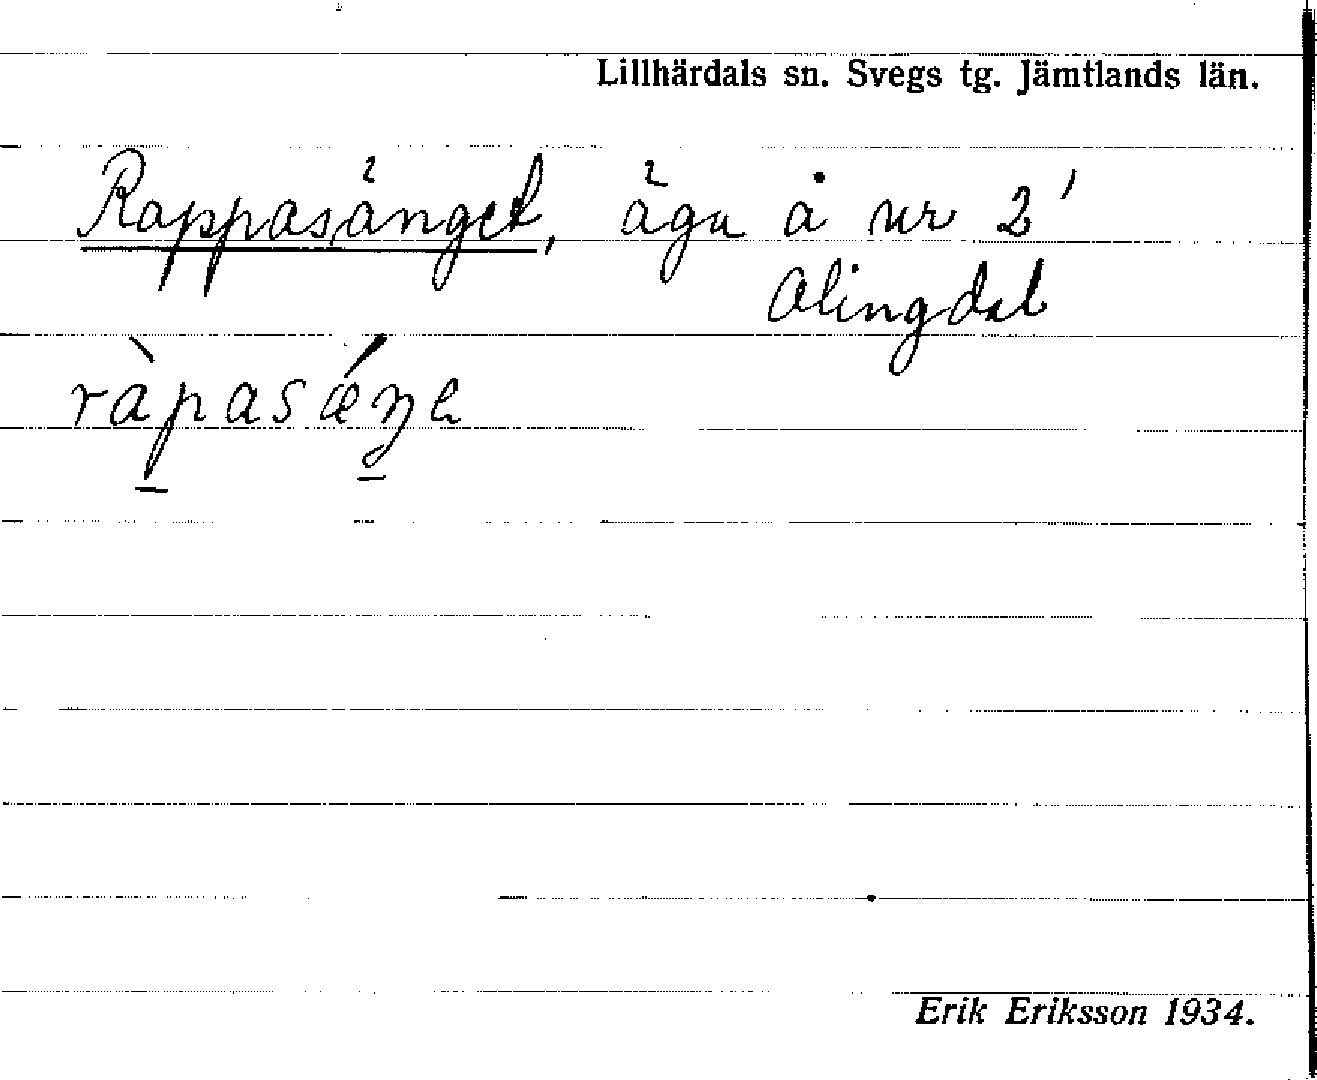 Lillhärdals sn. Svegs tg. Jämtlands län.
Rappasänget, äga å nr 2'
Olingdal
ràp̱asǽŋ̱e
Erik Eriksson 1934.